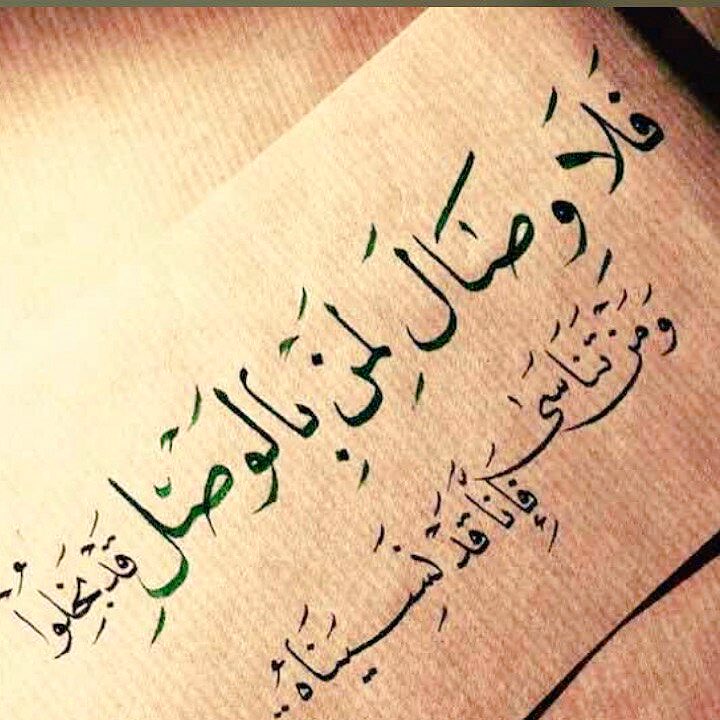 فَلَا وِصَالَ لِمَنْ بِالوَصْلِ قَدْ بَخِلُوا
وَمَنْ تَنَاسَىٰ فَإِنَّا قَدْ نَسِينَاهُ..